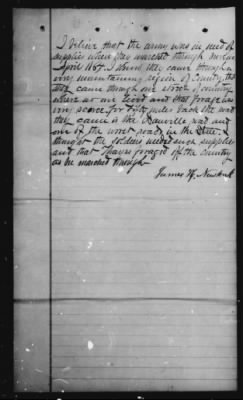 I believe that the army was in need of
supplies when they marched through
April 1865. I know they came through a
very mountainous region of Country, that
they came through one stretch of country
where no one lived and that forage was
very scarce for fifty miles back. The road
they came is the Danville road and
one of the worst roads in the State. I
think that the soldiers needed such supplies
and that they foraged off the country
as he marched through
James H. Newkirk